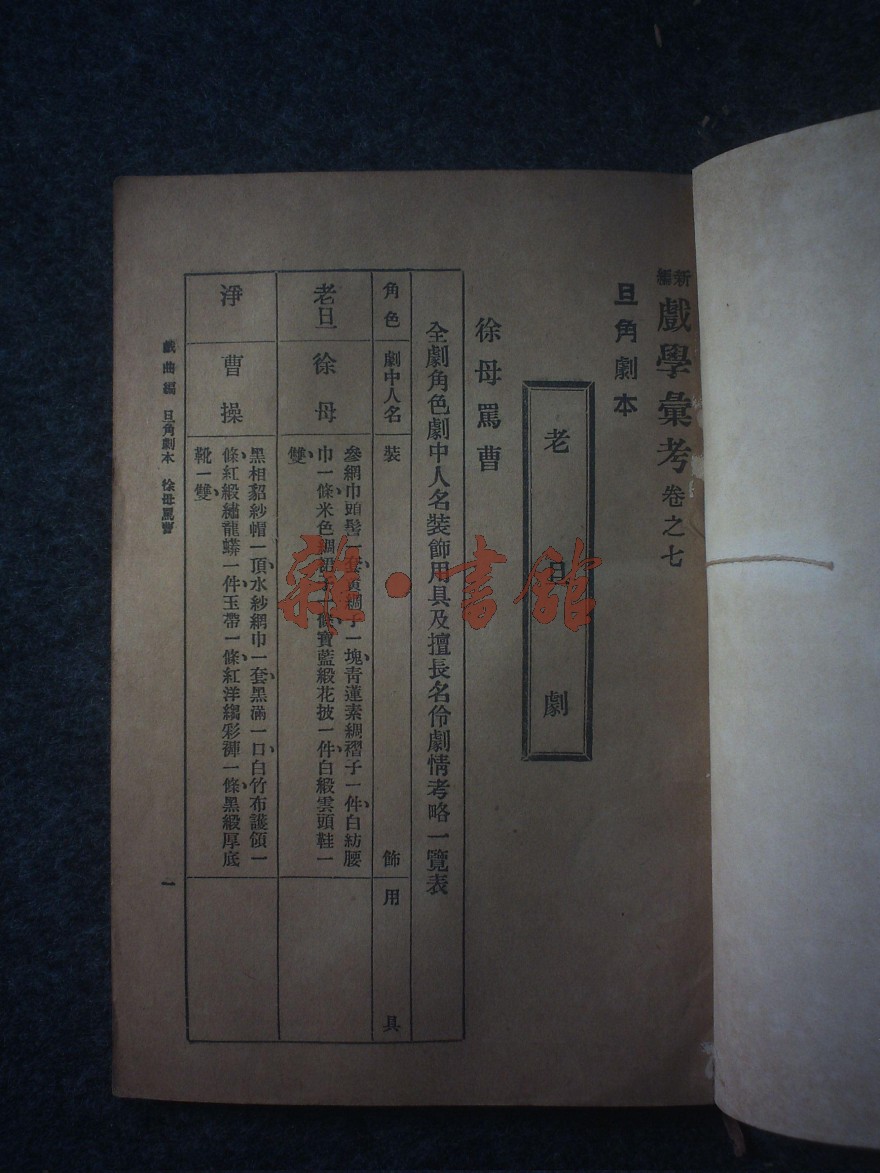 新編戲學彙考卷之七
旦角劇本
老旦劇
徐母罵曹
全劇角色劇中人名裝飾用具及擅長名伶劇情考略一覽表
角色 劇中人名 裝飾 用具
老旦 徐母
參網巾頭髻一套黃綢子一塊青蓮素綢褶子一件白紡腰
巾一條米色綢裙子一條寶藍緞花披一件白緞雲頭鞋一
雙
淨 曹操
黑相貂紗帽一頂水紗網巾一套黑滿一口白竹布護領一
條紅緞繡龍蟒一件玉帶一條紅洋縐彩褲一條黑緞厚底
靴一雙
戲曲編 旦角劇本 徐母罵曹 一
雜·書館